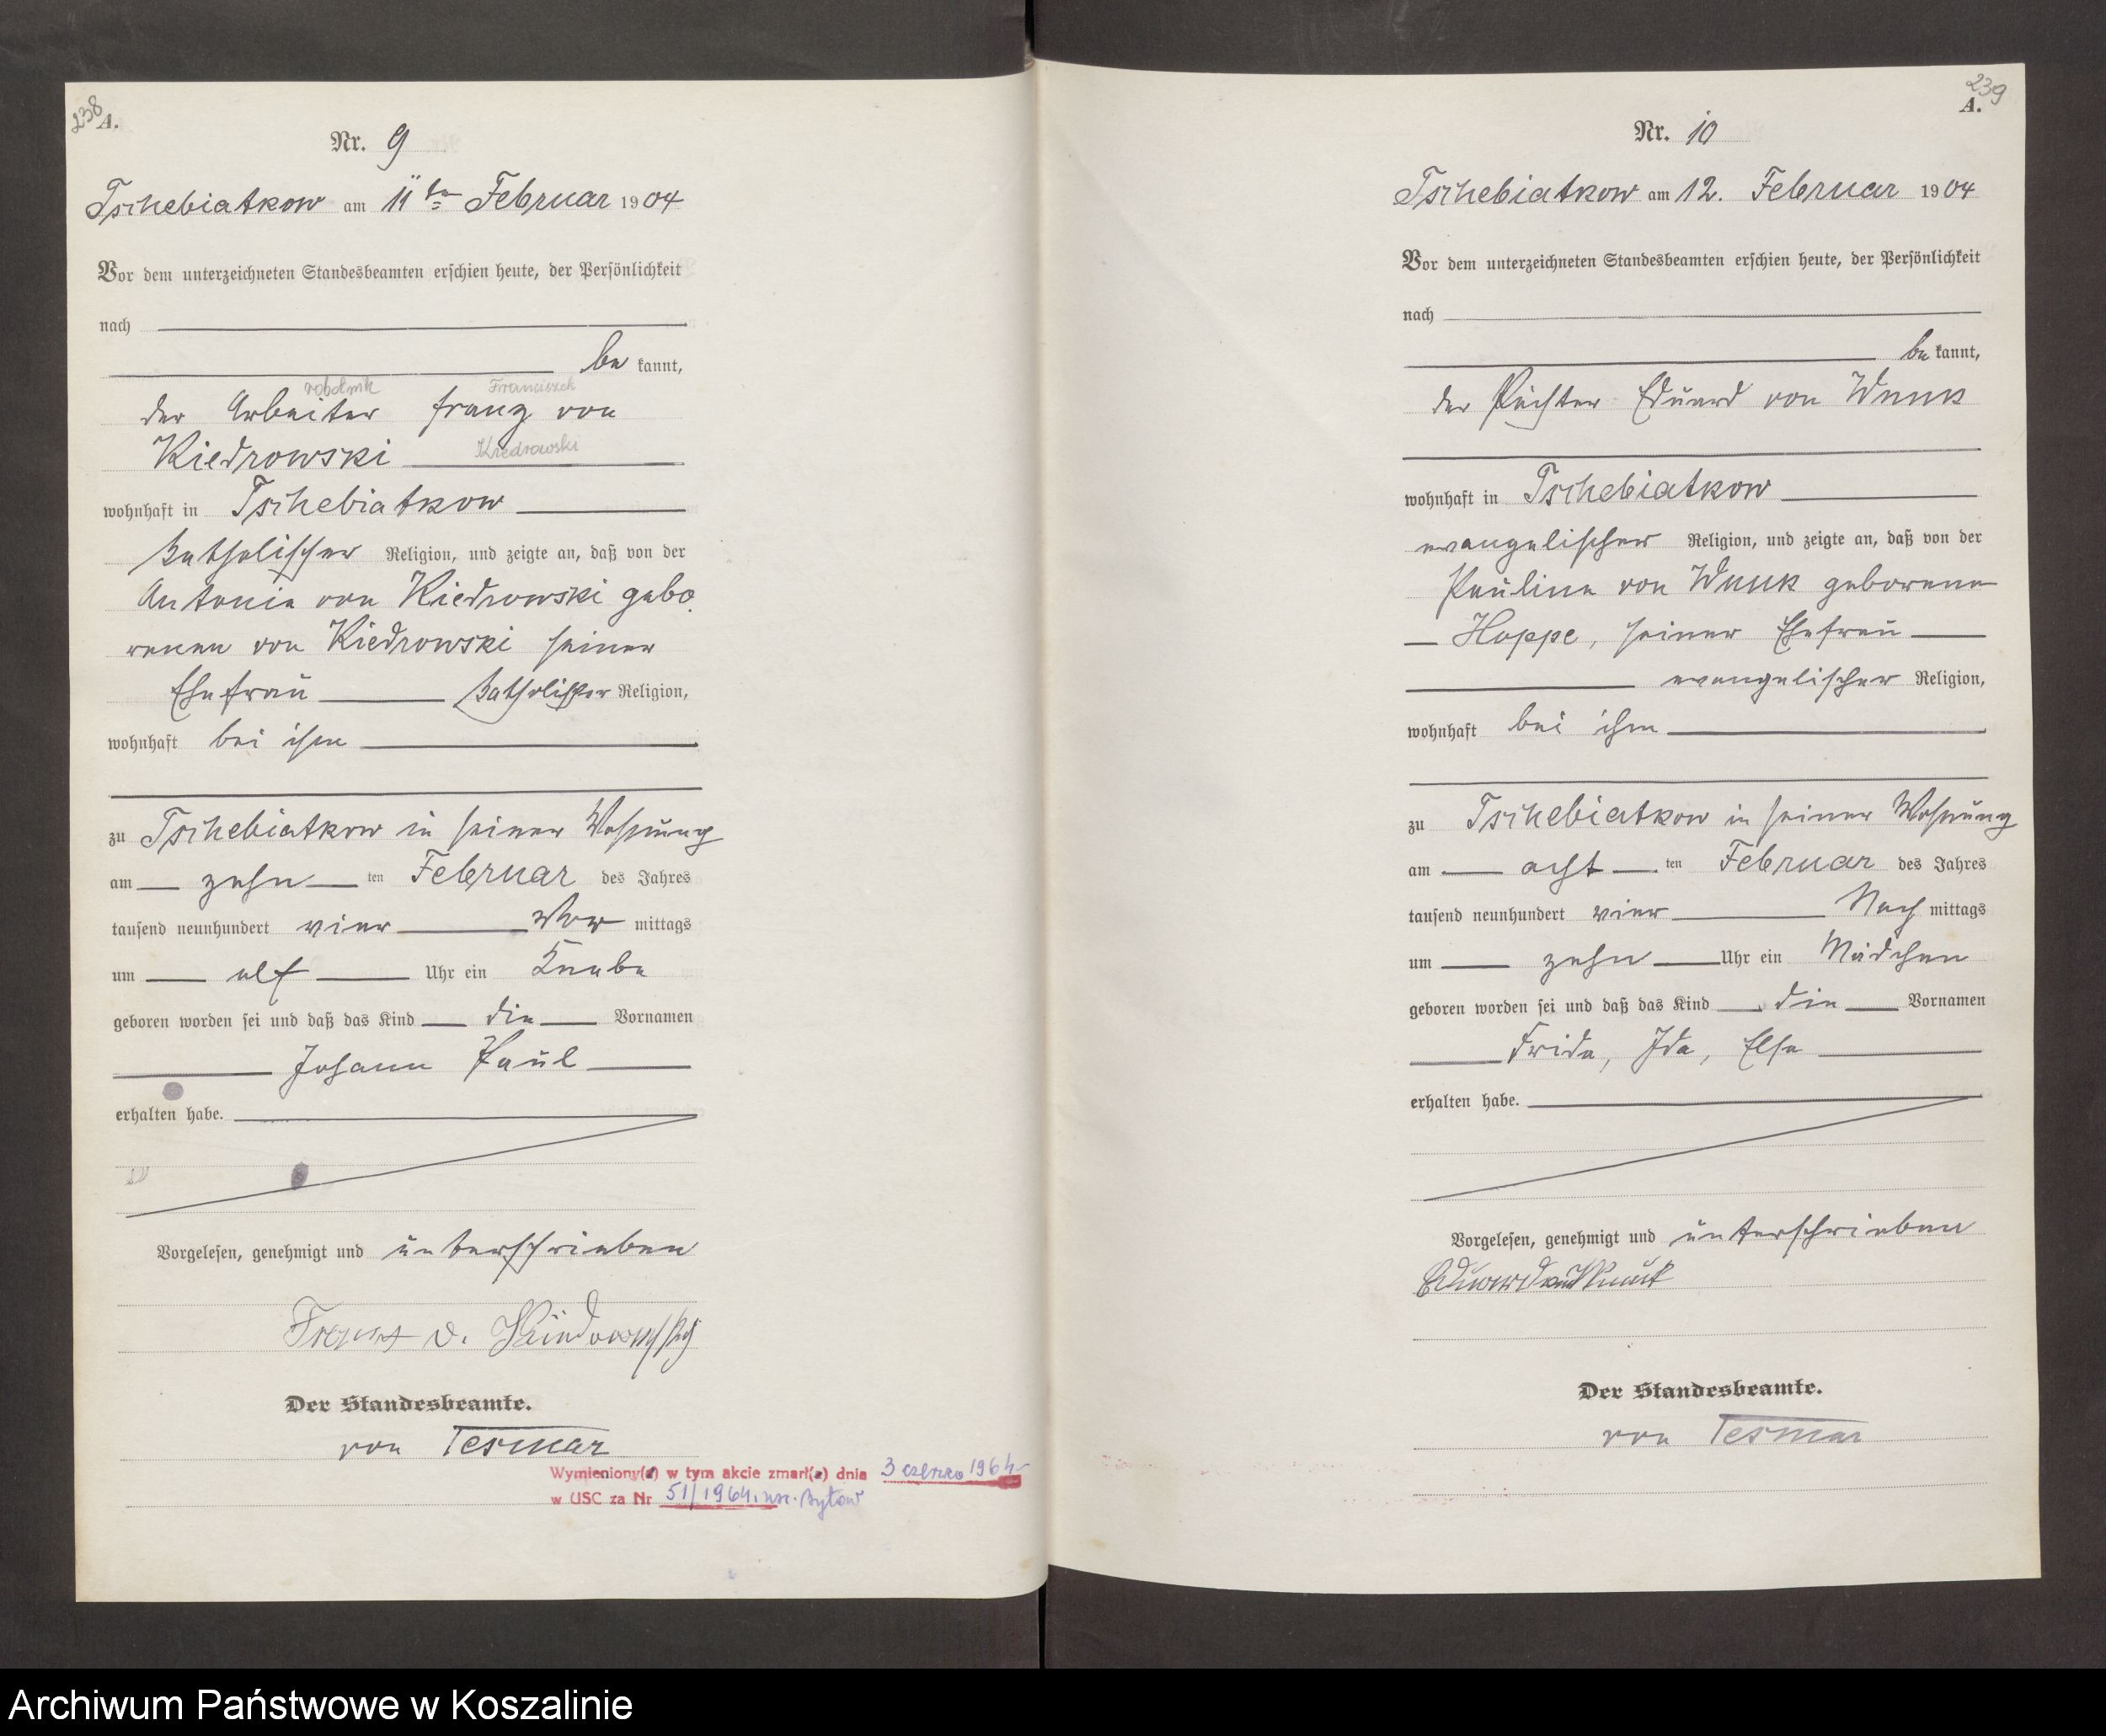 238
A.
Nr. 9
Tschebiatkow am 11ten Februar 1904
Vor dem unterzeichneten Standesbeamten erschien heute, der Persönlichkeit
nach
be kannt,
robotnik Franciszek
der Arbeiter Franz von
Kiedrowski Kiedrowski
wohnhaft in Tschebiatkow
katholischer Religion, und zeigte an, daß von der
Antonia von Kiedrowski gebo
renen von Kiedrowski seiner
Ehefrau katholischer Religion,
wohnhaft bei ihm
zu Tschebiatkow in seiner Wohnung
am zehn ten Februar des Jahres
tausend neunhundert vier Vor mittags
um elf Uhr ein Knabe
geboren worden sei und daß das Kind die Vornamen
Johann Paul
erhalten habe.
Vorgelesen, genehmigt und unterschrieben
Franz v.
Der Standesbeamte.
von Tesmar
Wymieniony(a) w tym akcie zmarł(a) dnia 3 czerwca 1964
w USC za Nr 51/1964. usc. Bytów
239
A.
Nr. 10
Tschebiatkow am 12. Februar 1904
Vor dem unterzeichneten Standesbeamten erschien heute, der Persönlichkeit
nach
be kannt,
der Pächter Eduard von Wnuk
wohnhaft in Tschebiatkow
evangelischer Religion, und zeigte an, daß von der
Pauline von Wnuk geborene
Hoppe, seiner Ehefrau
evangelischer Religion,
wohnhaft bei ihm
zu Tschebiatkow in seiner Wohnung
am acht ten Februar des Jahres
tausend neunhundert vier Nach mittags
um zehn Uhr ein Mädchen
geboren worden sei und daß das Kind die Vornamen
Frida, Ida, Else
erhalten habe.
Vorgelesen, genehmigt und unterschrieben
Eduard von Wnuck
Der Standesbeamte.
von Tesmar
Archiwum Państwowe w Koszalinie